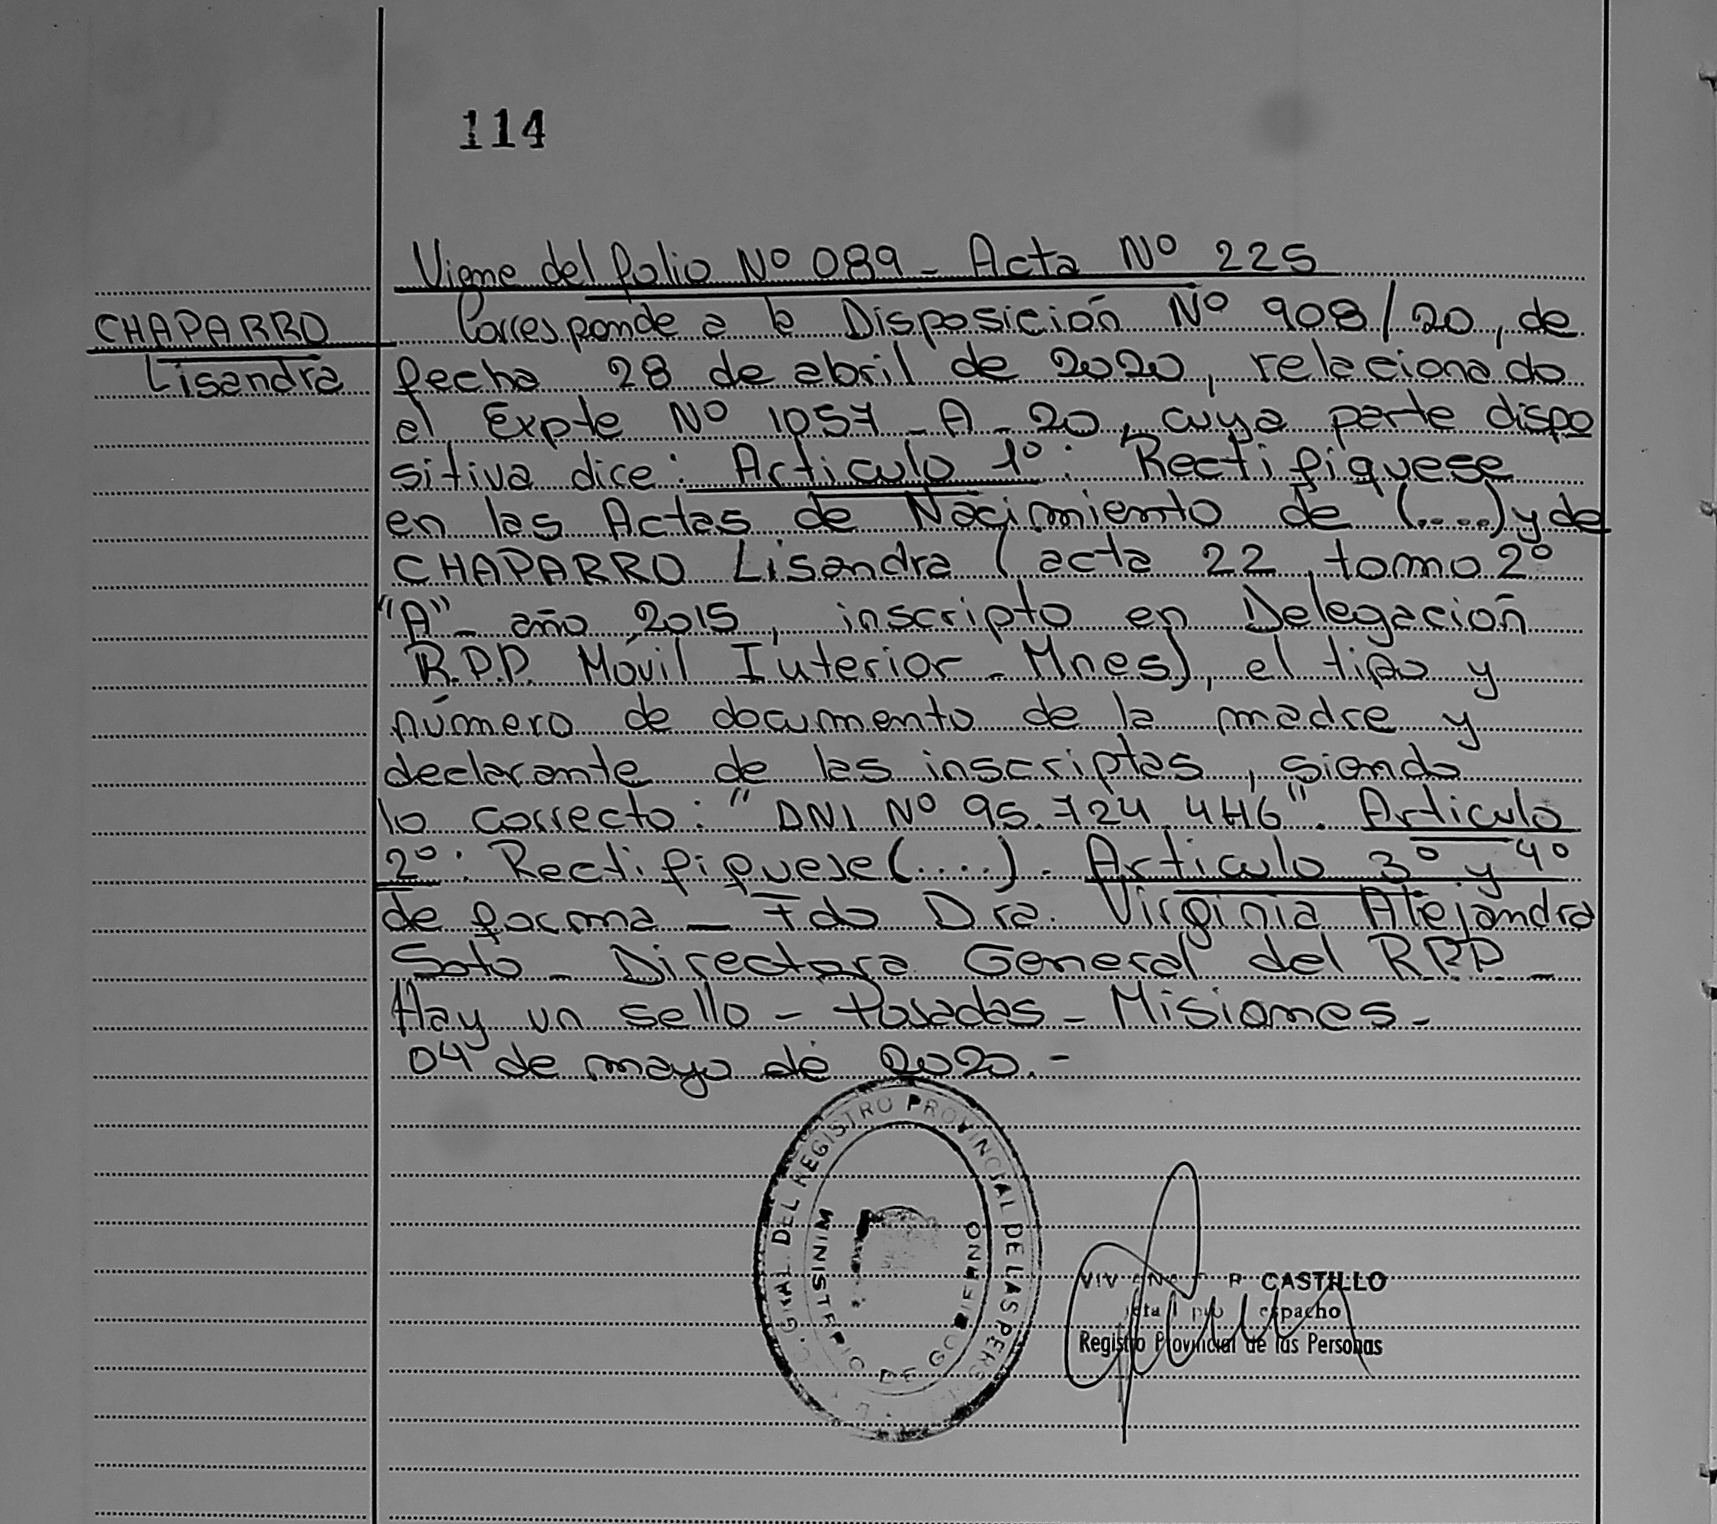 114
Viene del folio Nº 089 - Acta Nº 225
CHAPARRO
Lisandra
Corresponde a la Disposición Nº 908/20, de
fecha 28 de abril de 2020, relacionado
al Expte Nº 1057 - A - 20, cuya parte dispo
sitiva dice: Articulo 1º: Rectifiquese
en las Actas de Nacimiento de (....) y de
CHAPARRO Lisandra (acta 22, tomo 2º
"A" - año 2015, inscripto en Delegación
R.P.P. Móvil Interior - Mnes), el tipo y
número de documento de la madre y
declarante de las inscriptas, siendo
lo correcto: "DNI Nº 95.724.446". Articulo
2º: Rectifiquese (....). Articulo 3º y 4º
de forma - Fdo Dra. Virginia Alejandra
Soto - Directora General del RPP -
Hay un sello - Posadas - Misiones -
04 de mayo de 2020.-
GRAL DEL REGISTRO PROVINCIAL DE LAS PERS
MINISTERIO DE GOBIERNO
CASTILLO
Registro Provincial de las Personas